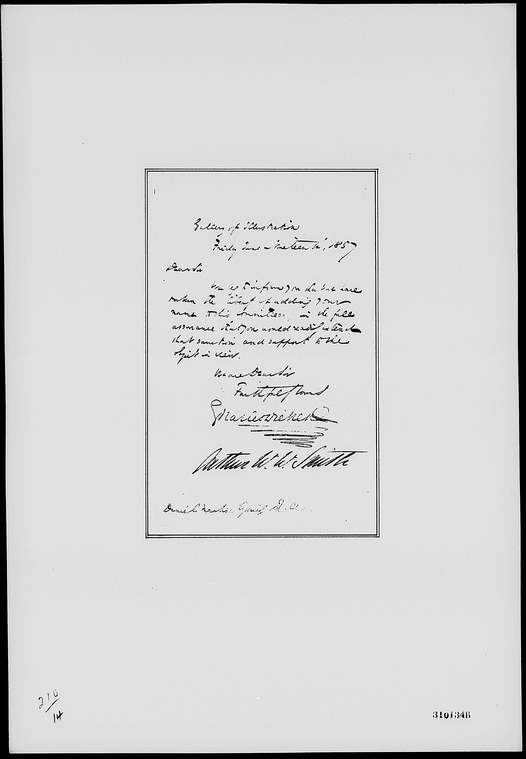 Gallery of Illustration
Friday June Nineteenth, 1857
Dear Sir
We to inform you that we have
taken the liberty of adding your
name to this Committee, in the full
assurance that you would readily extend
that sanction and support to the
object in view.
We are Dear Sir
Faithfully Yours
Charles Dickens
Arthur W. W. Smith
Daniel Maclise Esquire R. A.
210
14
310134B